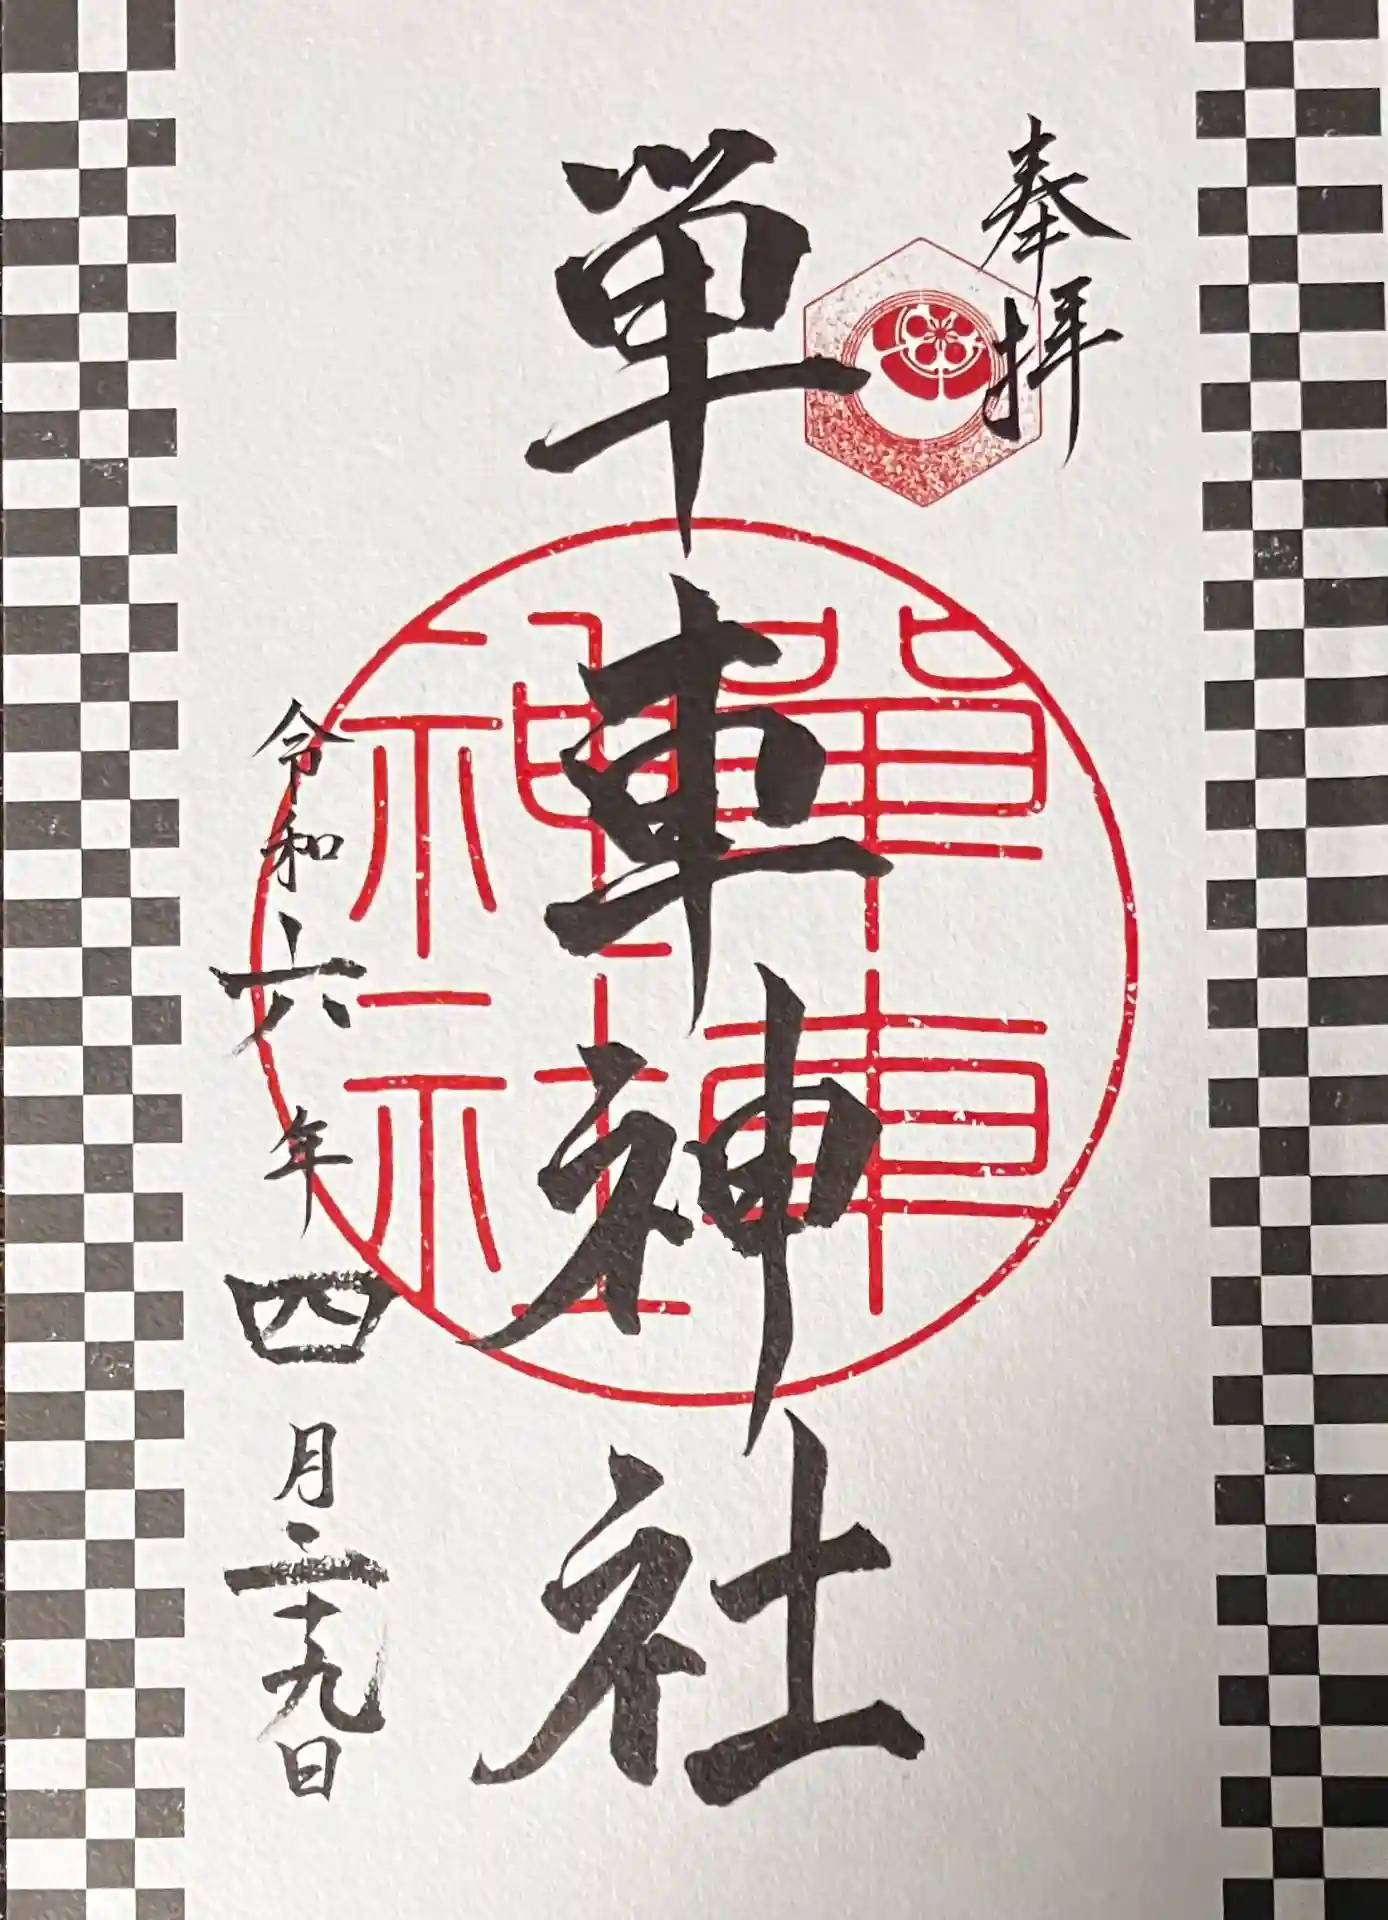 奉拝
単車神社
令和六年四月二十九日
單車神社